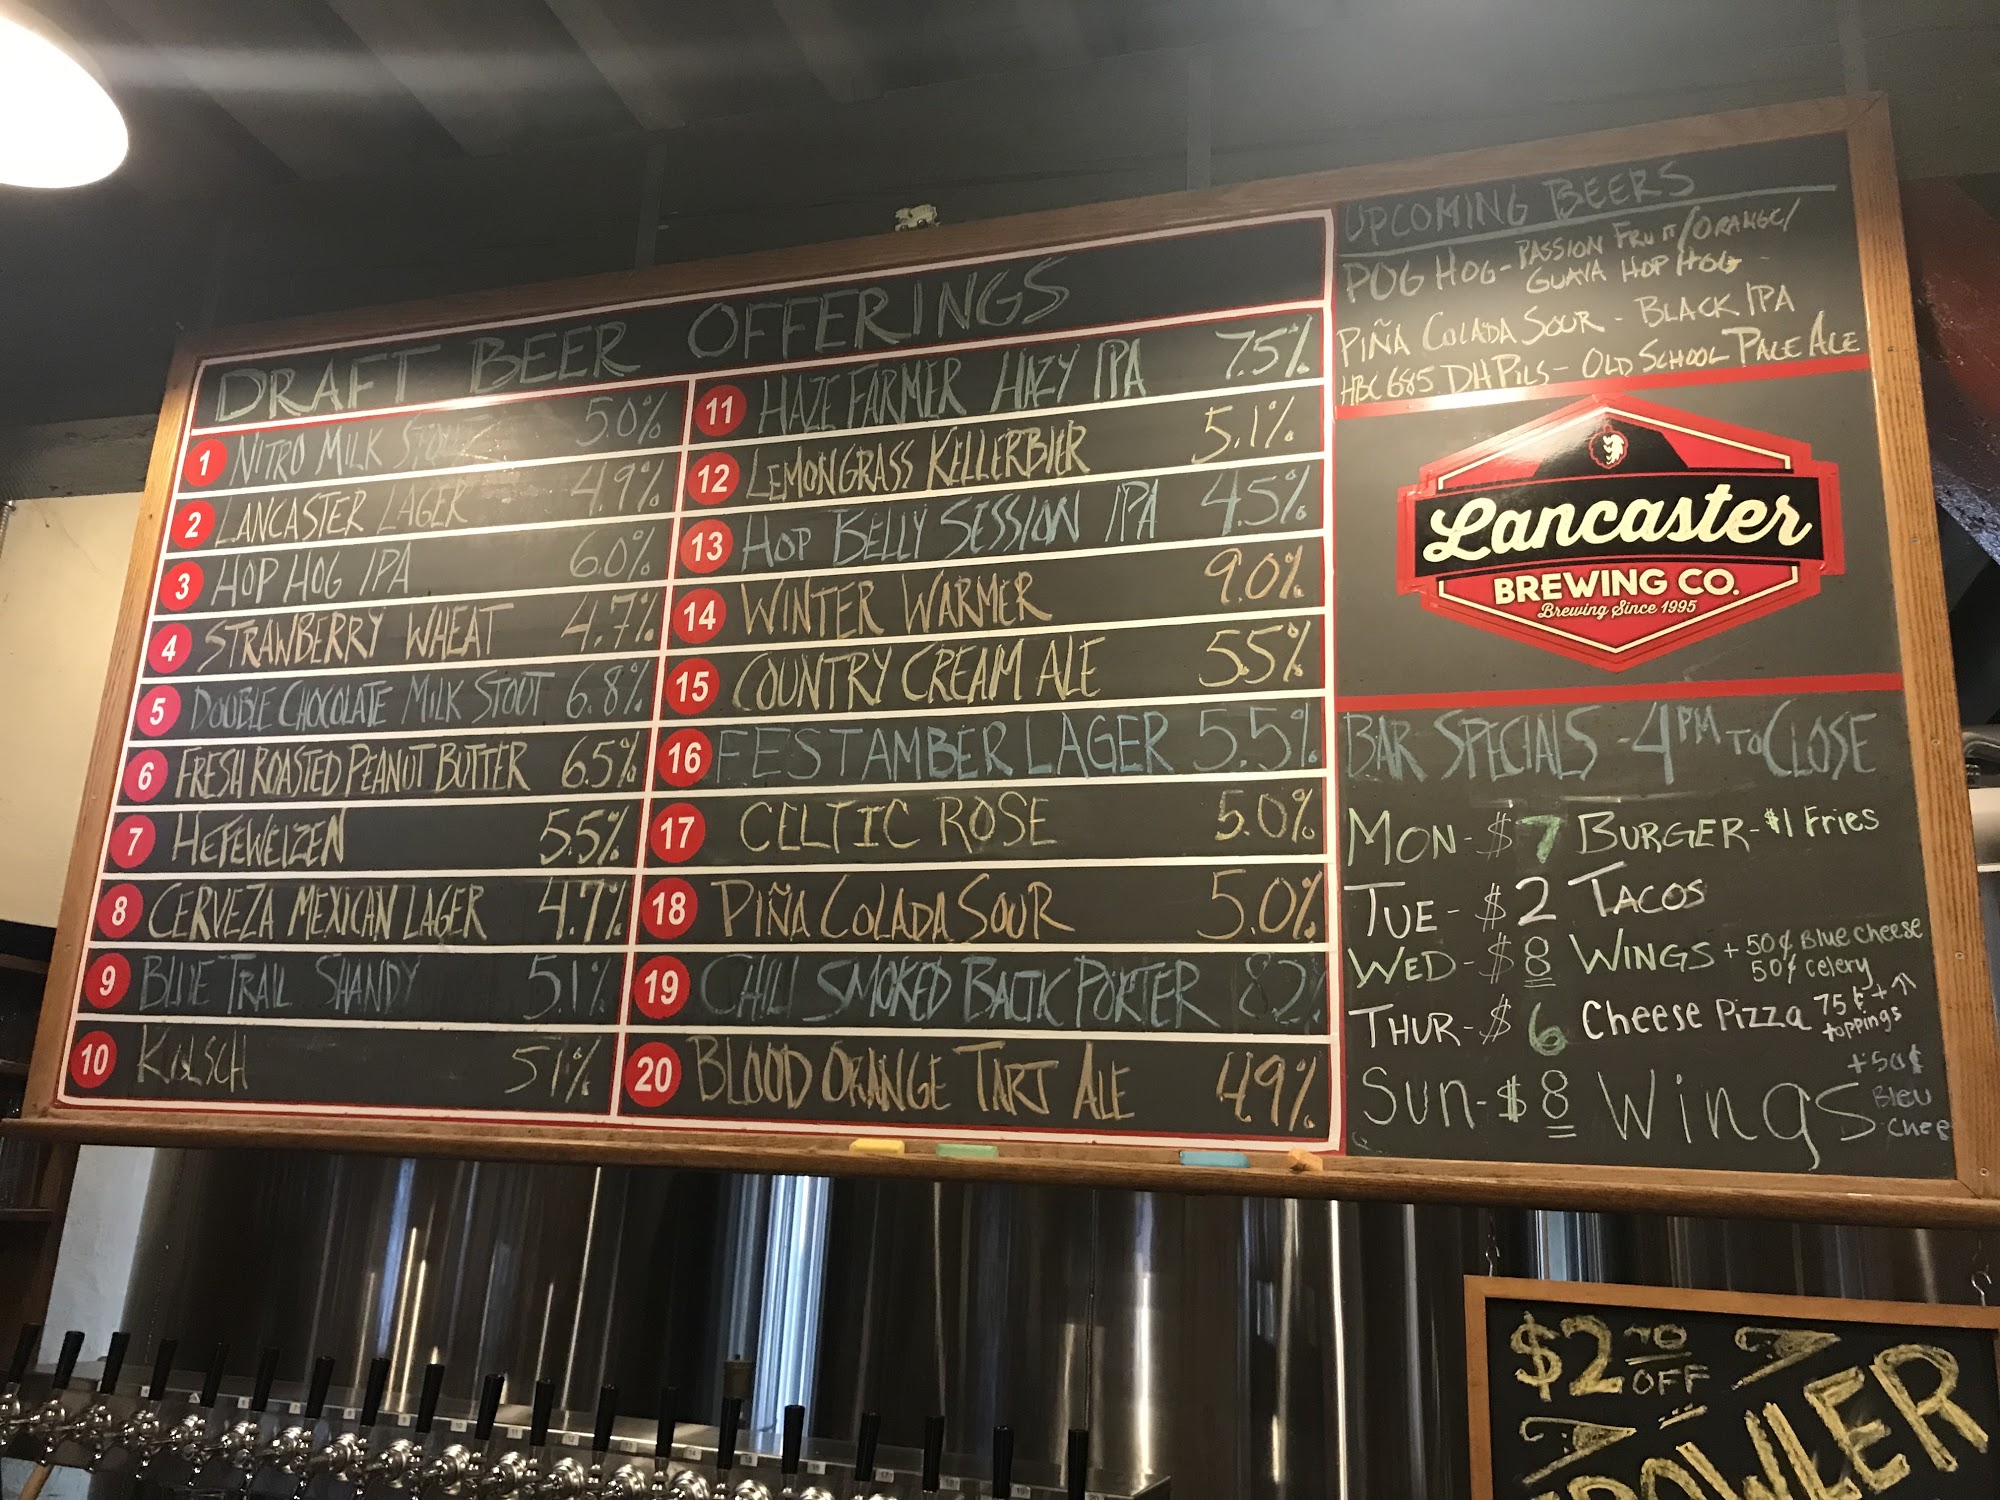 DRAFT BEER OFFERINGS
1 NITRO MILK STOUT 5.0%
2 LANCASTER LAGER 4.9%
3 HOP HOG IPA 6.0%
4 STRAWBERRY WHEAT 4.7%
5 DOUBLE CHOCOLATE MILK STOUT 6.8%
6 FRESH ROASTED PEANUT BUTTER 6.5%
7 HEFEWEIZEN 5.5%
8 CERVEZA MEXICAN LAGER 4.7%
9 BLUE TRAIL SHANDY 5.1%
10 KOLSCH 5.1%
11 HAZE FARMER HAZY IPA 7.5%
12 LEMONGRASS KELLERBIER 5.1%
13 HOP BELLY SESSION IPA 4.5%
14 WINTER WARMER 9.0%
15 COUNTRY CREAM ALE 5.5%
16 FEST AMBER LAGER 5.5%
17 CELTIC ROSE 5.0%
18 PIÑA COLADA SOUR 5.0%
19 CHILI SMOKED BALTIC PORTER 8.2%
20 BLOOD ORANGE TART ALE 4.9%
UPCOMING BEERS
POG HOG - PASSION FRUIT/ORANGE/
GUAVA HOP HOG -
PIÑA COLADA SOUR - BLACK IPA
HBC 685 DH PILS - OLD SCHOOL PALE ALE
Lancaster
BREWING CO.
Brewing Since 1995
BAR SPECIALS - 4PM TO CLOSE
MON - $7 BURGER - $1 Fries
TUE - $2 TACOS
WED - $8 WINGS + 50¢ Blue cheese
50¢ celery
THUR - $6 Cheese Pizza 75¢ + ↑
toppings
SUN - $8 Wings +50¢
Bleu
chee
$2 TO
OFF
GROWLER